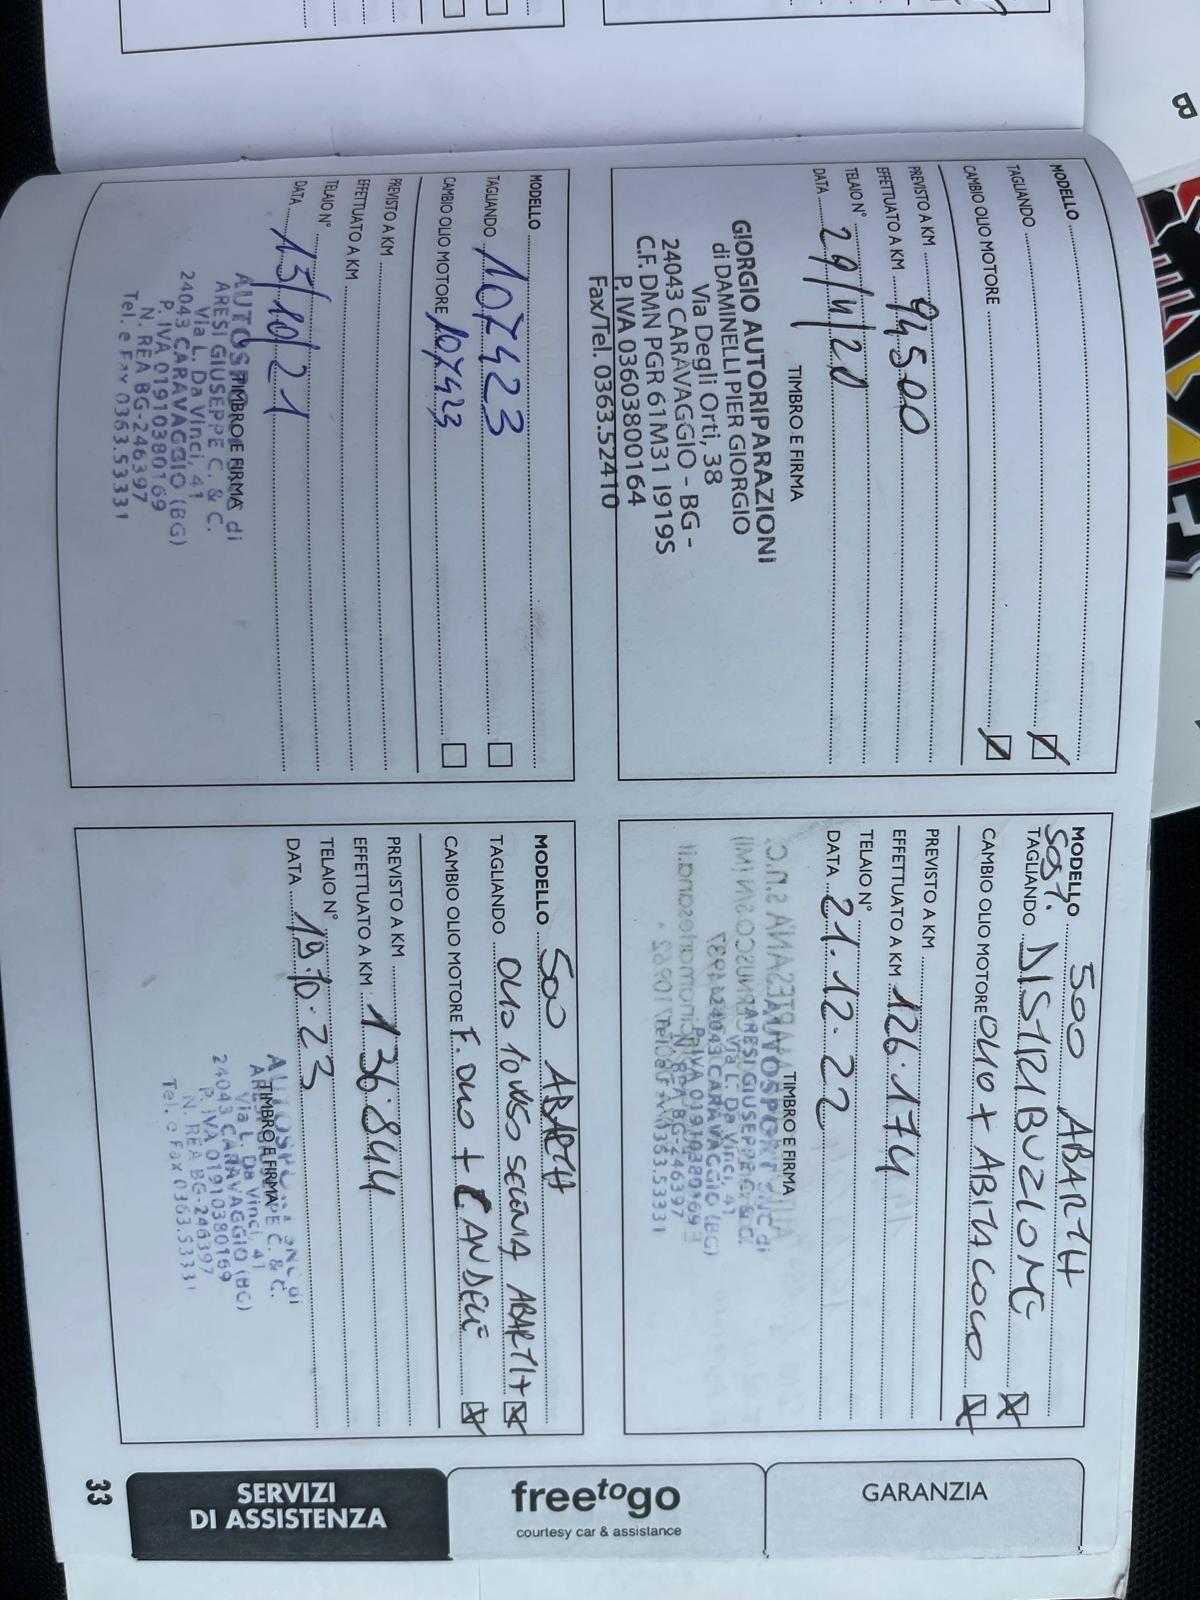 MODELLO
TAGLIANDO
CAMBIO OLIO MOTORE
PREVISTO A KM
EFFETTUATO A KM 94500
TELAIO N°
DATA 29/4/20
TIMBRO E FIRMA
GIORGIO AUTORIPARAZIONI
di DAMINELLI PIER GIORGIO
Via Degli Orti, 38
24043 CARAVAGGIO - BG -
C.F. DMN PGR 61M31 I919S
P. IVA 03603800164
Fax/Tel. 0363.52410
MODELLO 500 ABARTH
TAGLIANDO SOST. DISTRIBUZIONE
CAMBIO OLIO MOTORE OLIO + ABITACOLO
PREVISTO A KM
EFFETTUATO A KM 126.174
TELAIO N°
DATA 21.12.22
TIMBRO E FIRMA
AUTOSPORT SNC di
ARESI GIUSEPPE C. & C.
Via L. Da Vinci, 41
24043 CARAVAGGIO (BG)
P. IVA 01910380169
N. REA BG-246397
Tel. e Fax 0363.53331
MODELLO
TAGLIANDO 107423
CAMBIO OLIO MOTORE 107423
PREVISTO A KM
EFFETTUATO A KM
TELAIO N°
DATA 13/10/21
TIMBRO E FIRMA
di
ARESI GIUSEPPE C. & C.
Via L. Da Vinci, 41
24043 CARAVAGGIO (BG)
P. IVA 01910380169
N. REA BG-246397
Tel. e Fax 0363.53331
MODELLO 500 ABARTH
TAGLIANDO OLIO 10W50 SELENIA ABARTH
CAMBIO OLIO MOTORE F. OLIO + CANDELE
PREVISTO A KM
EFFETTUATO A KM 136.844
TELAIO N°
DATA 19.10.23
TIMBRO E FIRMA
AUTOSPORT SNC di
Via L. Da Vinci, 41
24043 CARAVAGGIO (BG)
P. IVA 01910380169
N. REA BG-246397
Tel. e Fax 0363.53331
GARANZIA
freetogo
courtesy car & assistance
SERVIZI
DI ASSISTENZA
33